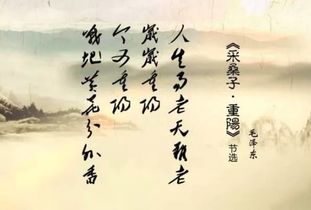 《采桑子·重陽》节选
毛泽东
人生易老天难老
歲歲重阳
今又重阳
战地黄花分外香